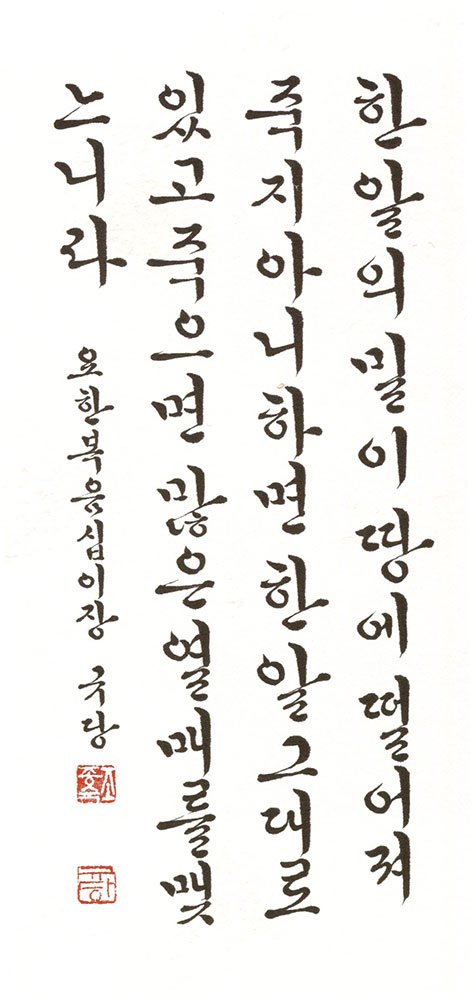 한알의밀이땅에떨어져
죽지아니하면한알그대로
있고죽으면많은열매를맺
느니라
요한복음십이장 국당